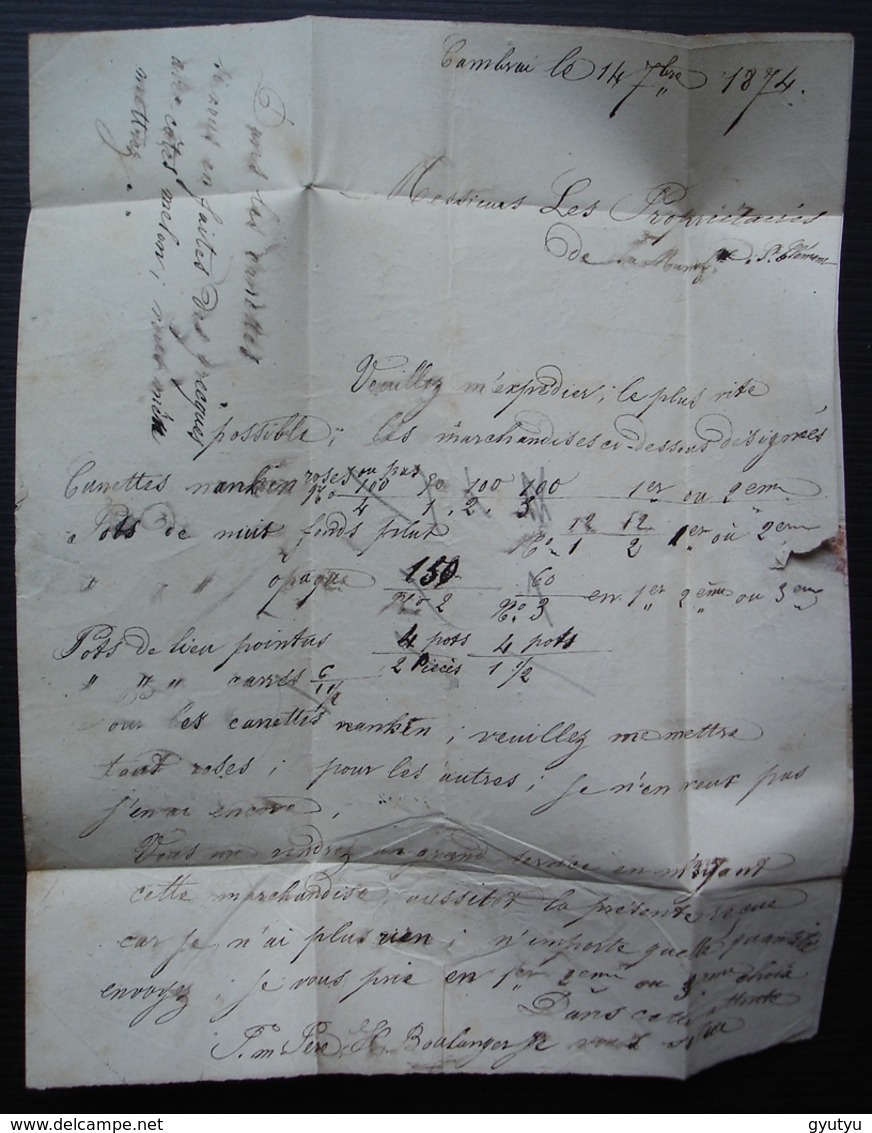 Cambrai le 14 7bre 1874.
Messieurs Les Propriétaires
de la Manufre St Clément
Veuillez m'expédier ; le plus vite
possible ; les marchandises ci-dessous désignées
Canettes nankin roses ou pas No 100/4 90/1. 100/2. 100/3 1er ou 2eme
Pots de nuit fonds plat No 12/1 12/2 1er où 2eme
" " " opaque 150/No 2 60/No 3 en 1er 2eme ou 3eme
Pots de lieu pointus 4 pots/2 Pièces 4 pots/1 1/2
" " " carrés 6/1 1/2
our les canettes nankin ; veuillez me mettre
tout roses ; pour les autres ; je n'en veux pas
j'en ai encore,
Vous me rendrez un grand service en m'
cette marchandise, aussitot la présente reçue
car je n'ai plus rien ; n'importe quelle quantité
envoyez ; je vous prie en 1er 2eme ou 3eme choix
Dans cette attente
P. m Père H. Boulanger je vous salue
Dans les canettes
si vous en faites des
avec côtes melon ; vous m'en
mettrez . .
gyutyu